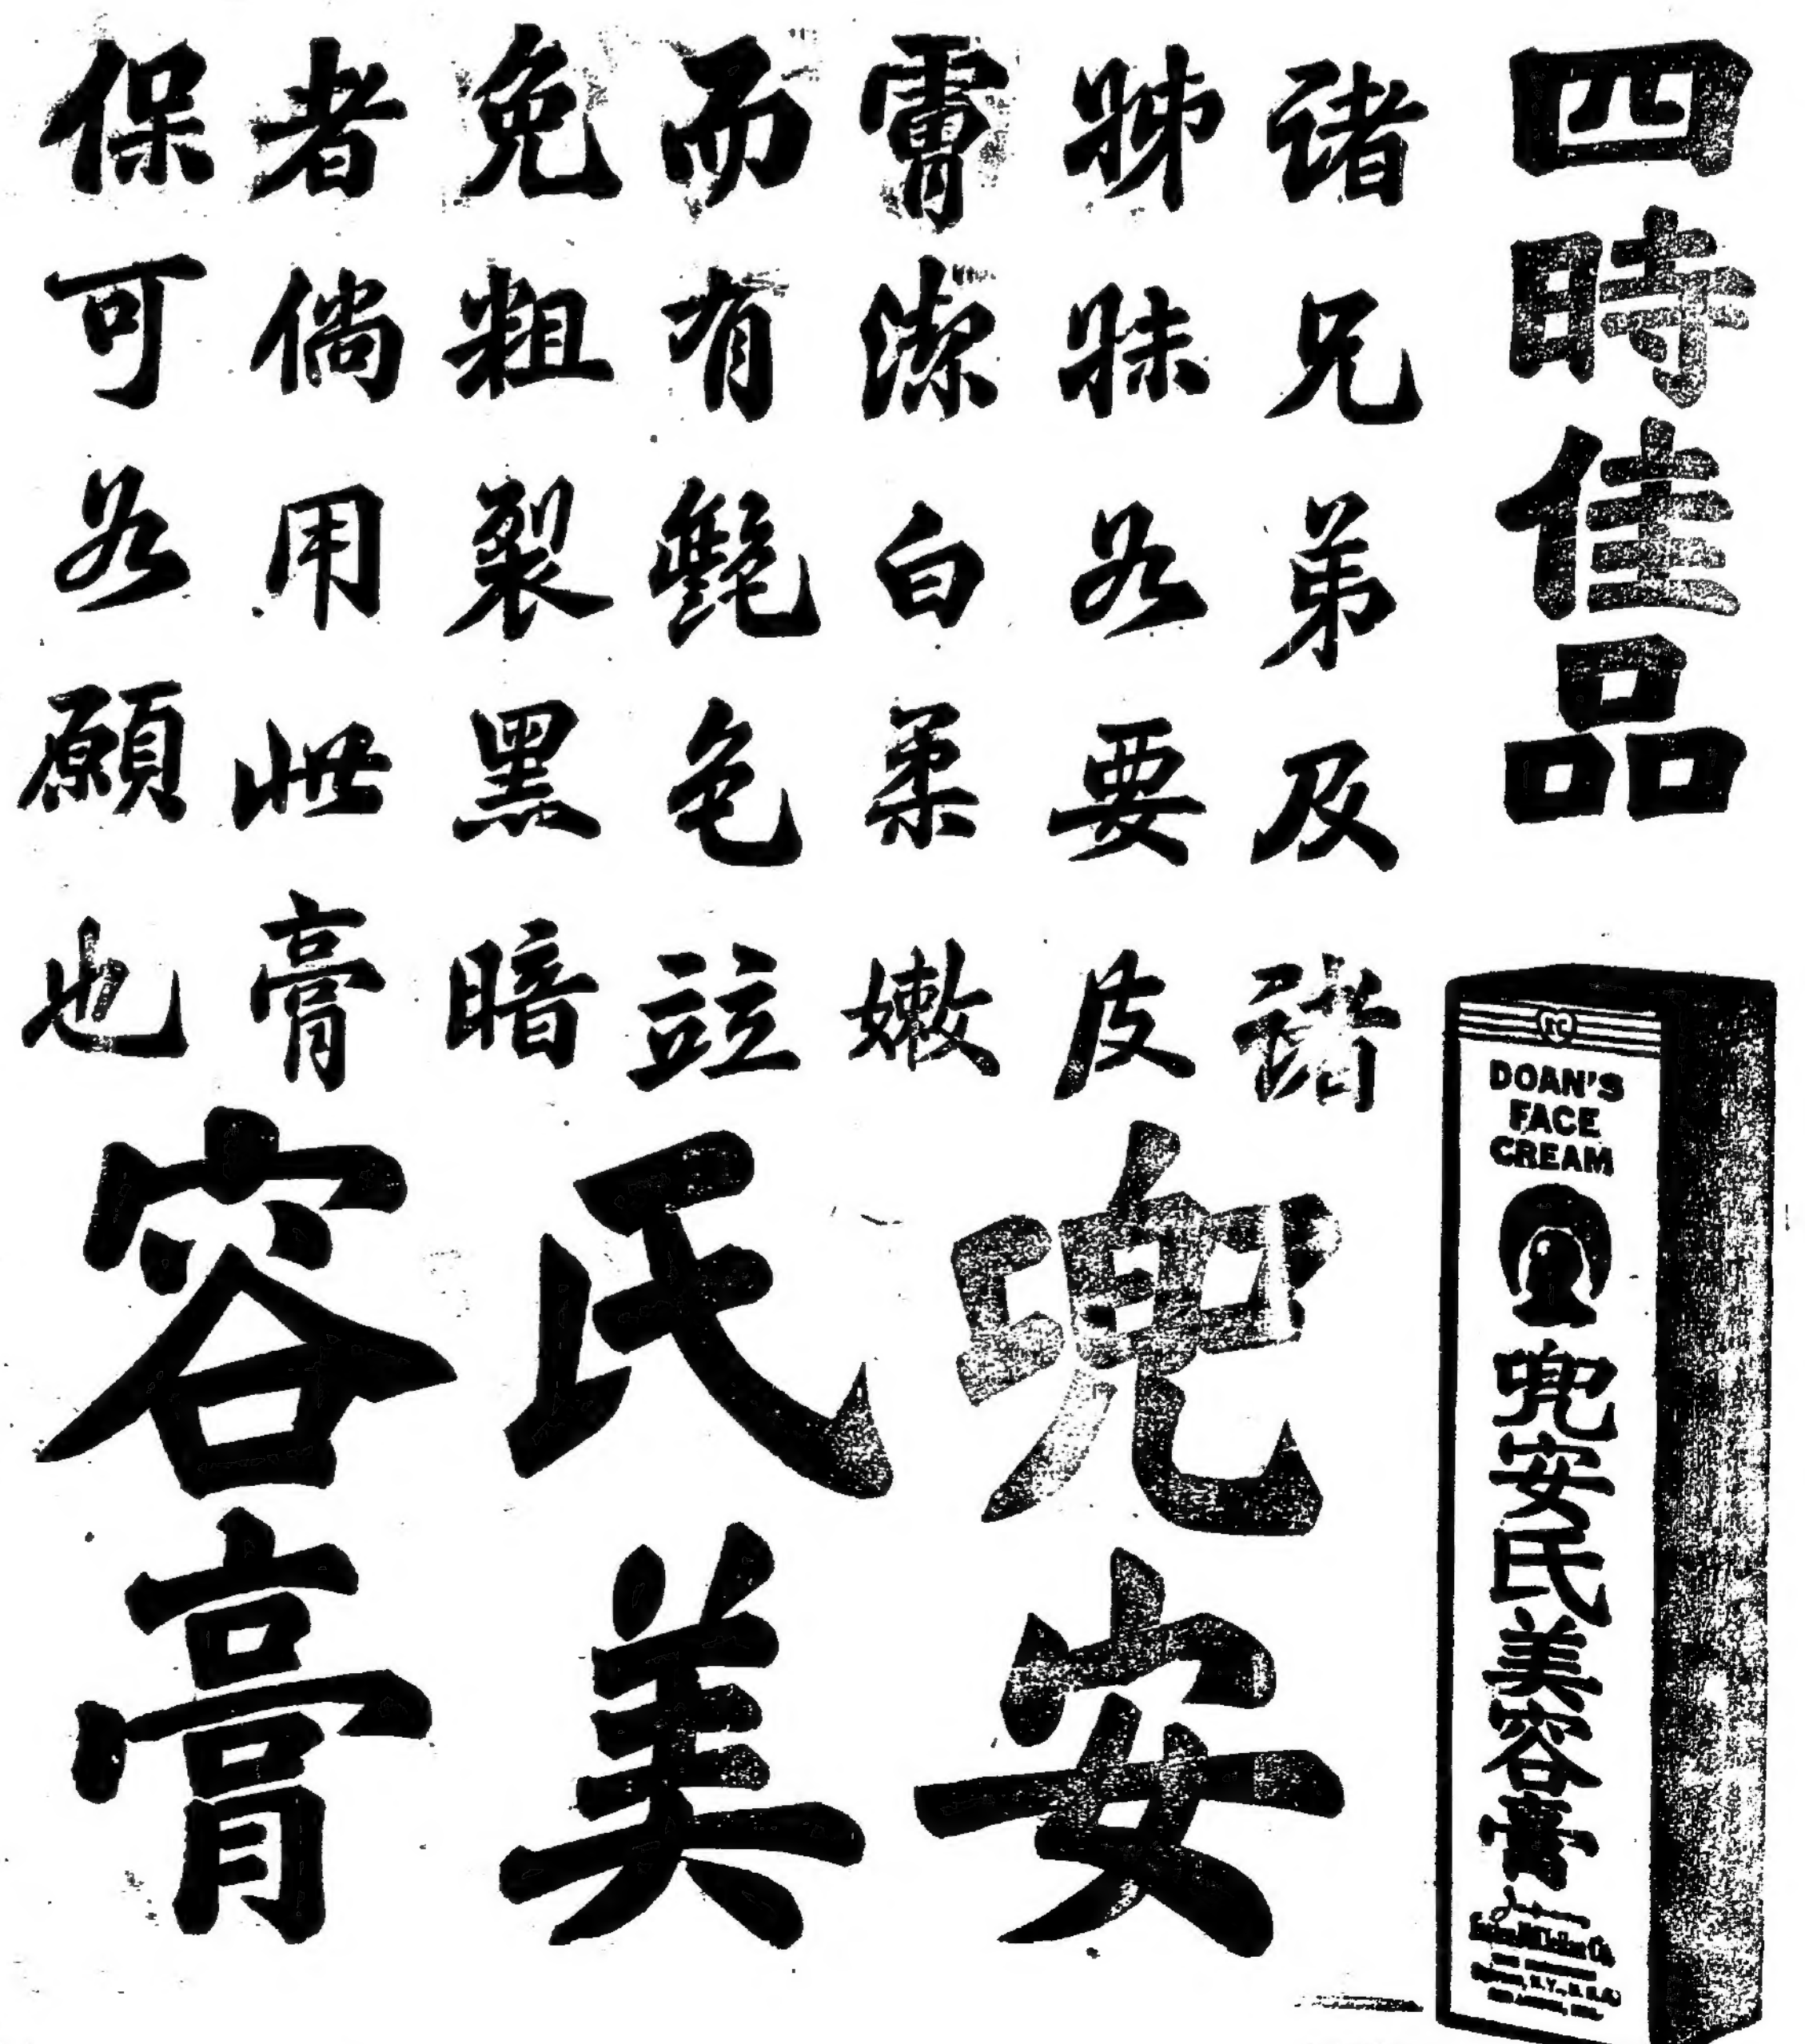 四時佳品
諸兄弟及諸
姊妹如要皮
膚潔白柔嫩
而有艷色竝
免粗裂黑暗
者倘用此膏
保可如願也
兜安
氏美
容膏
DOAN'S
FACE
CREAM
兜安氏美容膏